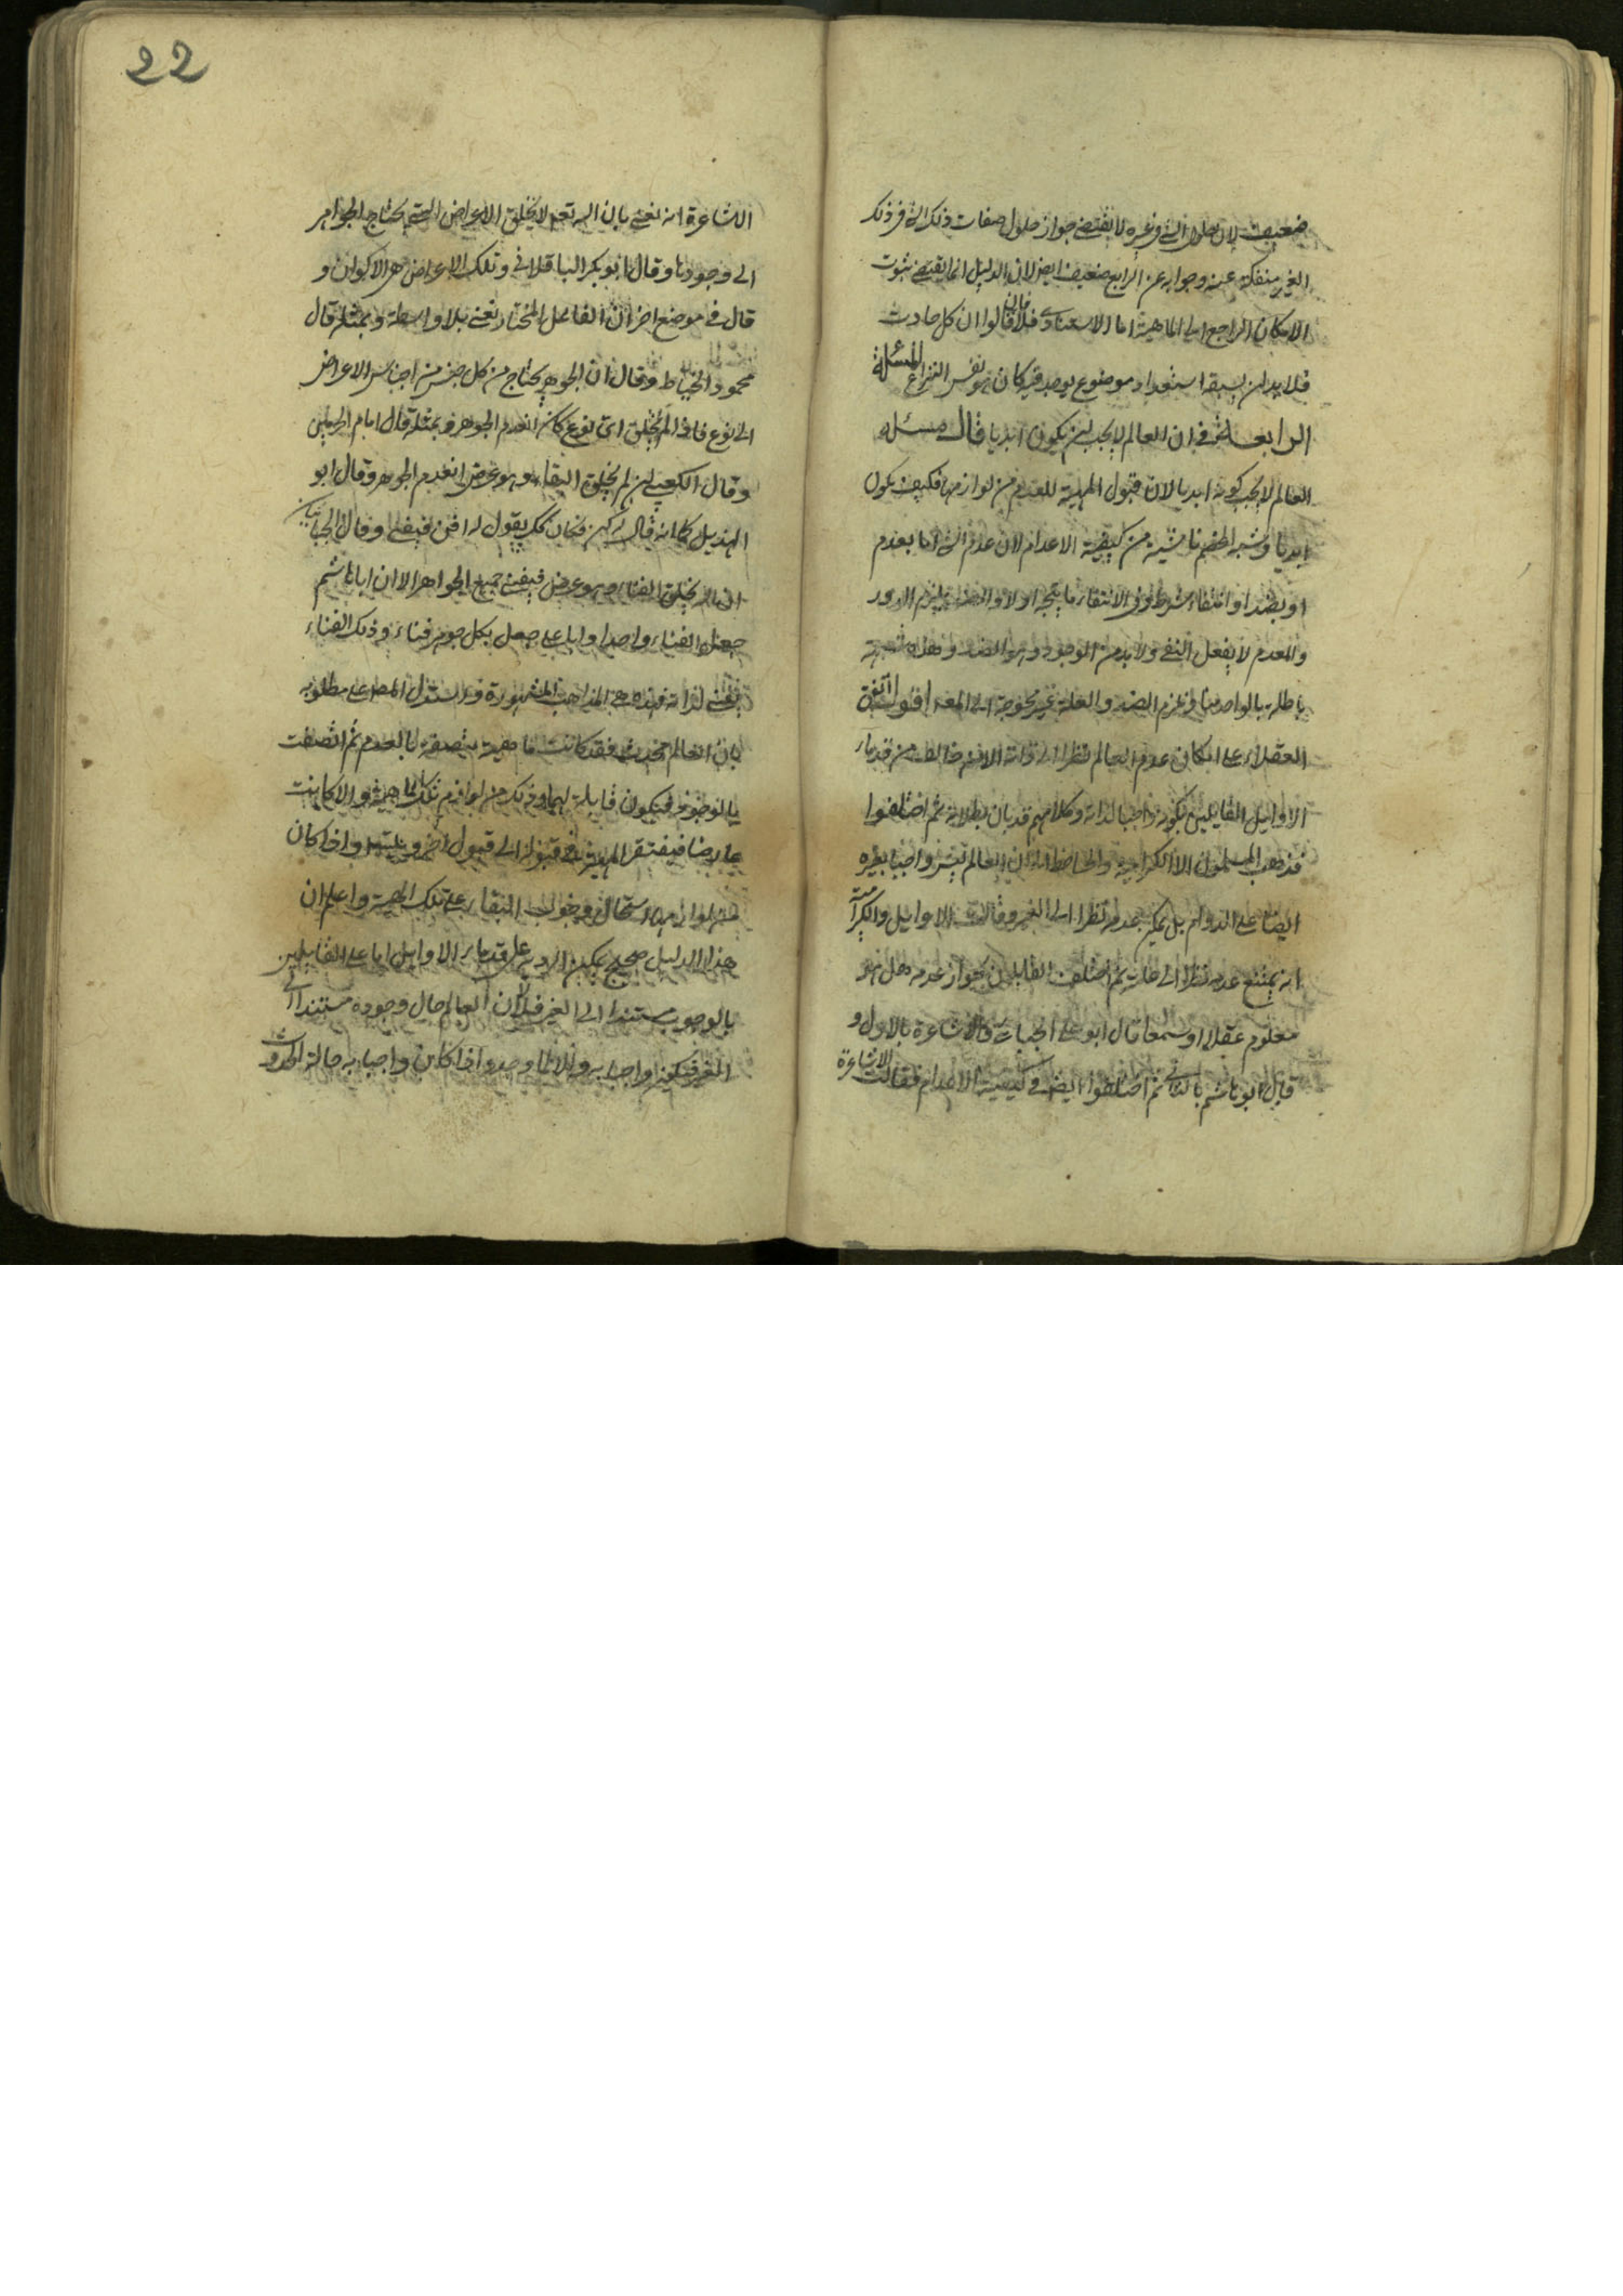 ضعيف لان حلول الشئ في غيره لا يقتضي جواز حلول صفات ذلك الشئ في ذلك
الغير منفكة عنه وجوابه عن الرابع ضعيف ايضا لان الدليل انما يقتضي ثبوت
الامكان الراجع الى الماهية اما الاستعدادى فلا فان قالوا ان كل حادث
فلا بد ان يسبقه استعداد موضوع يوجد فيه كان هو نفس النزاع المسئلة
الرابعة في ان العالم لا يجب ان يكون ابديا قال مسئلة
العالم لا يجب كونه ابديا لان قبول المهية للعدم من لوازمها فكيف يكون
ابديا وشبه الخصم ناشية من كيفية الاعدام لان عدم الشئ اما بعدم
او بضد او انتفاء شرط وفى الانتفاء ما يتجه اولا والضد يلزم الدور
والمعدم لا يفعل النفى ولا بد من الوجود وهو الضد وهذه شبهة
باطلة بالواحد منا وعزم الضد والعلة غير محوجة الى المعد اقول اتفق
العقلاء على امكان عدم العالم نظرا الى ذاته الا من قدماء
الاوايل القايلين بكونه واجبا لذاته وكلامهم قد بان بطلانه ثم اختلفوا
فذهب المسلمون الا الكرامية والجاحظ الى ان العالم ليس واجبا بغيره
ايضا على الدوام بل يمكن عدمه نظرا الى الغير وقالت الاوايل والكرامية
انه يمتنع عدمه نظرا الى ثم اختلف القايلون بجواز عدمه هل هو
معلوم عقلا او سمعا قال ابو على الجبائى والاشاعرة بالاول و
قال ابو هاشم بالثانى ثم اختلفوا ايضا فى كيفية الاعدام فقالت الاشاعرة
22
الاشاعرة انه يفنى بان الله تعالى لا يخلق الاعراض التى يحتاج الجواهر
الى وجودها وقال ابو بكر الباقلانى وتلك الاعراض هى الاكوان و
قال فى موضع اخر ان الفاعل المختار يفنى بلا واسطة وبمثله قال
محمود الخياط وقال ان الجوهر يحتاج من كل جنس من اجناس الاعراض
الى نوع فاذا لم يخلق اى نوع كان انعدم الجوهر وبمثله قال امام الحرمين
وقال الكعبى ان لم يخلق البقاء وهو عرض انعدم الجوهر وقال ابو
الهذيل كما انه قال له كن فكان كذلك يقول له افن فيفنى وقال الجبائيان
ان الله يخلق الفناء وهو عرض فيفنى جميع الجواهر الا ان ابا هاشم
جعل الفناء واحدا وابا على جعل لكل جوهر فناء وذلك الفناء
يفنى لذاته فهذه هى المذاهب المشهورة واستدل المص على مطلوبه
بان العالم محدث فقد كانت ماهيته متصفة بالعدم ثم اتصفت
بالوجود فيكون قابلة لهما وذلك من لوازم تلك الماهية والا كانت
عارضا فيفتقر المهية فى قبولها الى قبول اخر ويتسلسل واذا كان
من لوازمها استحال وجوب البقاء على تلك المهية واعلم ان
هذا الدليل صحيح يمكن الرد على قدماء الاوايل اما على القايلين
بالوجوب مستندا الى الغير فلا لان العالم حال وجوده مستندا الى
الغير فيكون واجبا به والا لما وجد واذا كان واجبا به حالة الحدوث